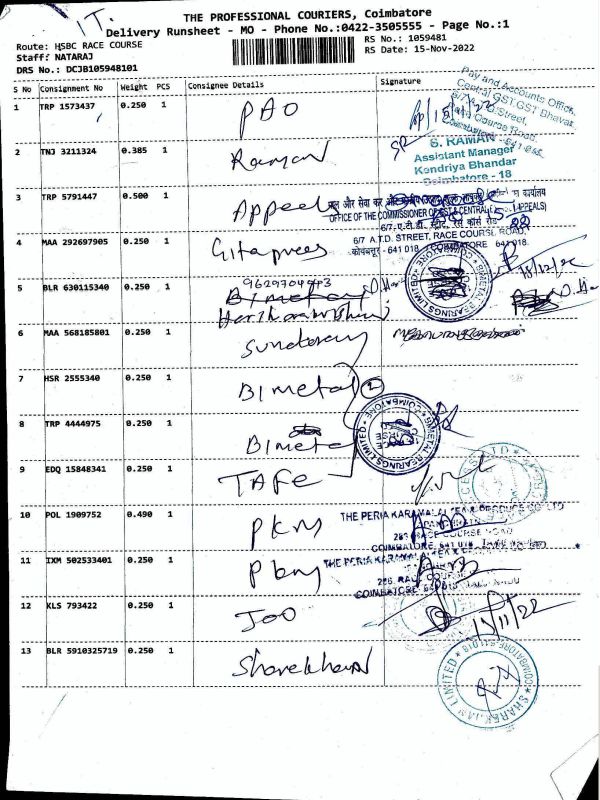 I.T.
THE PROFESSIONAL COURIERS, Coimbatore
Delivery Runsheet - MO - Phone No.:0422-3505555 - Page No.:1
Route: HSBC RACE COURSE
RS No.: 1059481
Staff: NATARAJ
RS Date: 15-Nov-2022
DRS No.: DCJB105948101
S No Consignment No Weight PCS Consignee Details Signature
1 TRP 1573437 0.250 1 PAO
Pay and Accounts Office,
Central GST, GST Bhavan,
6/7, A.T.D. Street,
Race Course Road,
Coimbatore - 641 018.
2 TNJ 3211324 0.385 1 Raman
S. RAMAN
Assistant Manager
Kendriya Bhandar
Coimbatore - 18
3 TRP 5791447 0.500 1 Appeels
OFFICE OF THE COMMISSIONER OF GST & CENTRAL (APPEALS)
6/7 A.T.D. STREET, RACE COURSE ROAD,
कोयंबतूर - 641 018 COIMBATORE 641 018.
4 MAA 292697905 0.250 1 Gitapress
5 BLR 630115340 0.250 1
BIMETAL BEARINGS LIMITED * COIMBATORE
6 MAA 568185801 0.250 1 Sundaram
7 HSR 2555340 0.250 1 Bimetal 2
8 TRP 4444975 0.250 1 Bimetal
BIMETAL BEARINGS LIMITED * COIMBATORE
9 EDQ 15848341 0.250 1 TAFE
10 POL 1909752 0.490 1 PKM
THE PERIA KARAMALAI TEA & PRODUCE CO LTD
286 RACE COURSE ROAD
COIMBATORE, 641 018
11 IXM 502533401 0.250 1 Pkm
THE PERIA KARAMALAI TEA &
286, RACE COURSE
COIMBATORE 641018
12 KLS 793422 0.250 1 Joo
15/11/22
13 BLR 5910325719 0.250 1 Sharekhan
SHAREKHAN LIMITED * COIMBATORE 641 018